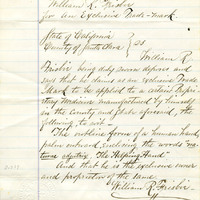 William R. Frisbie
for An Exclusive Trade-Mark.
State of California
County of Santa Clara } SS
William R
Frisbie being duly sworn deposes and
says that he claims as an exclusive Trade
Mark to be applied to a certain
Medicine manufactured by himself
in the County and State aforesaid, the
following, to wit—
The outline form of a human hand,
palm outward, enclosing the words
The Helping Hand
And that he is the exclusive owner
and proprietor of the same
William R. Frisbie